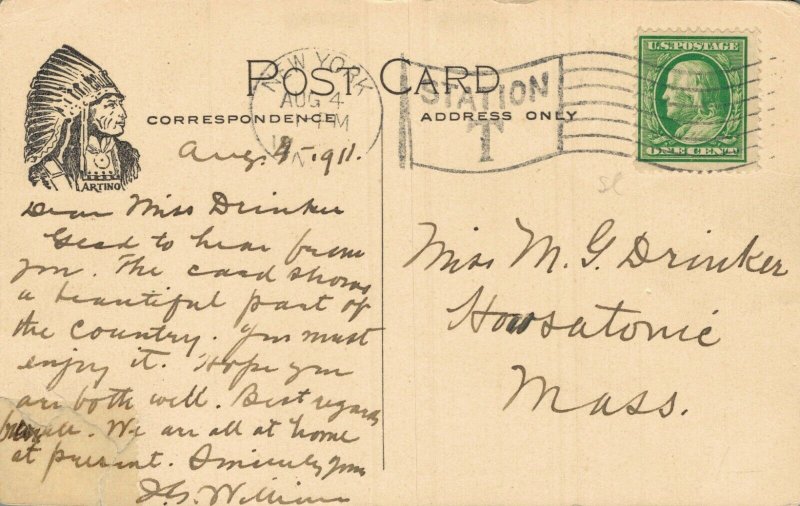 POST CARD
NEW YORK
AUG 4
STATION
T
U.S. POSTAGE
ONE CENT
CORRESPONDENCE
ADDRESS ONLY
ARTINO
Aug. 4-1911.
Dear Miss Drinker
Glad to hear from
you. The card shows
a beautiful part of
the country. You must
enjoy it. Hope you
are both well. Best regards
We are all at home
at present. Sincerely yours
Miss M. G. Drinker
Howsatonic
Mass.